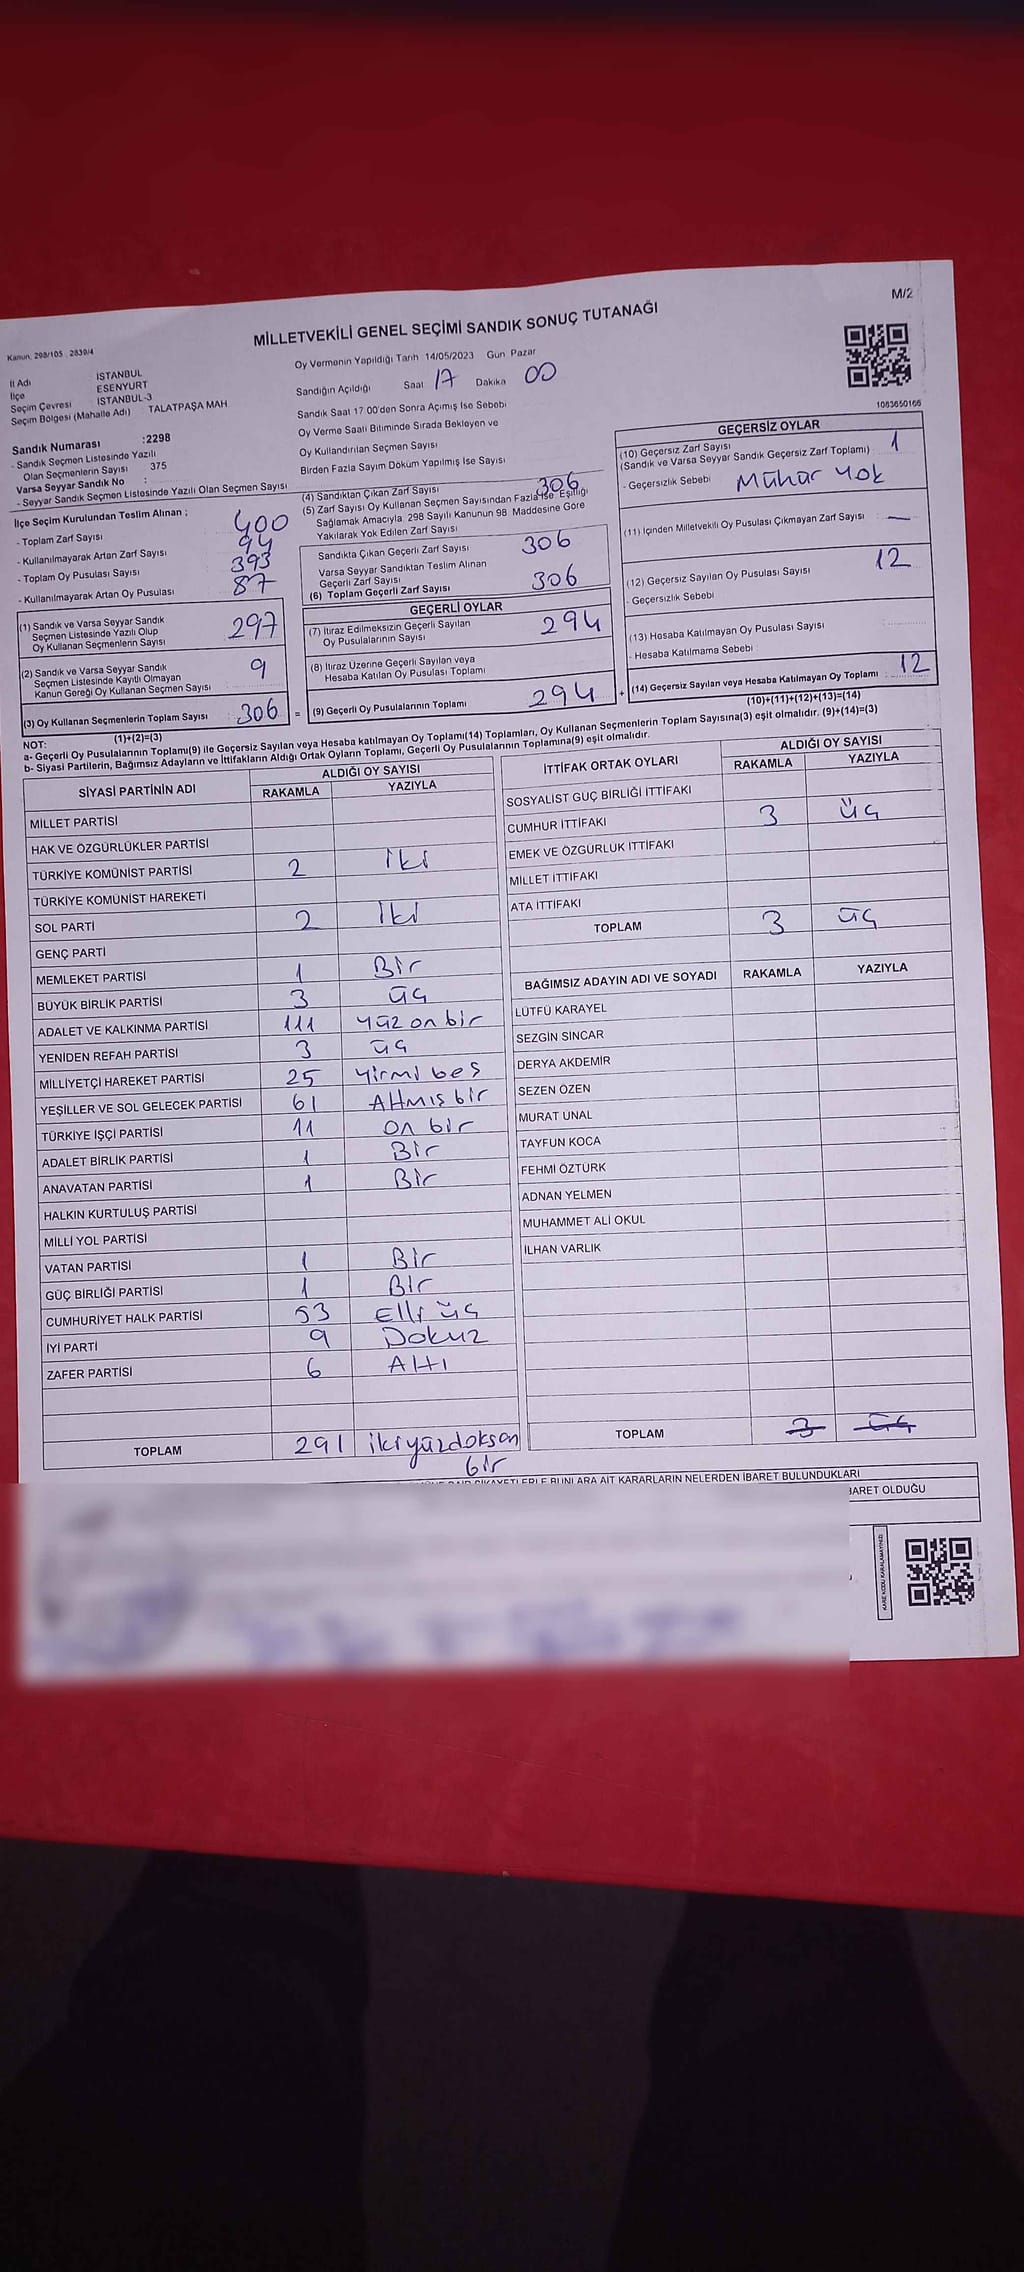 M/2
MİLLETVEKİLİ GENEL SEÇİMİ SANDIK SONUÇ TUTANAĞI
Kanun, 298/105 , 2839/4
Oy Vermenin Yapıldığı Tarih 14/05/2023 Gün Pazar
İl Adı İSTANBUL
İlçe ESENYURT
Seçim Çevresi İSTANBUL-3
Seçim Bölgesi (Mahalle Adı) TALATPAŞA MAH
Sandığın Açıldığı Saat 17 Dakika 00
Sandık Saat 17 00'den Sonra Açımış İse Sebebi
Oy Verme Saati Bitiminde Sırada Bekleyen ve
Oy Kullandırılan Seçmen Sayısı
Birden Fazla Sayım Döküm Yapılmış İse Sayısı
1083650166
Sandık Numarası :2298
- Sandık Seçmen Listesinde Yazılı
Olan Seçmenlerin Sayısı 375
Varsa Seyyar Sandık No :
- Seyyar Sandık Seçmen Listesinde Yazılı Olan Seçmen Sayısı
İlçe Seçim Kurulundan Teslim Alınan ;
- Toplam Zarf Sayısı 400
- Kullanılmayarak Artan Zarf Sayısı 94
- Toplam Oy Pusulası Sayısı 393
- Kullanılmayarak Artan Oy Pusulası 87
(1) Sandık ve Varsa Seyyar Sandık
Seçmen Listesinde Yazılı Olup
Oy Kullanan Seçmenlerin Sayısı 297
(2) Sandık ve Varsa Seyyar Sandık
Seçmen Listesinde Kayıtlı Olmayan
Kanun Gereği Oy Kullanan Seçmen Sayısı 9
(3) Oy Kullanan Seçmenlerin Toplam Sayısı 306 =
(1)+(2)=(3)
(4) Sandıktan Çıkan Zarf Sayısı 306
(5) Zarf Sayısı Oy Kullanan Seçmen Sayısından Fazla İse Eşitliği
Sağlamak Amacıyla 298 Sayılı Kanunun 98 Maddesine Göre
Yakılarak Yok Edilen Zarf Sayısı
Sandıkta Çıkan Geçerli Zarf Sayısı 306
Varsa Seyyar Sandıktan Teslim Alınan
Geçerli Zarf Sayısı
(6) Toplam Geçerli Zarf Sayısı 306
GEÇERLİ OYLAR
(7) İtiraz Edilmeksizin Geçerli Sayılan
Oy Pusulalarının Sayısı 294
(8) İtiraz Üzerine Geçerli Sayılan veya
Hesaba Katılan Oy Pusulası Toplamı
(9) Geçerli Oy Pusulalarının Toplamı 294 +
GEÇERSİZ OYLAR
(10) Geçersiz Zarf Sayısı 1
(Sandık ve Varsa Seyyar Sandık Geçersiz Zarf Toplamı)
- Geçersizlik Sebebi Mühür Yok
(11) İçinden Milletvekili Oy Pusulası Çıkmayan Zarf Sayısı —
(12) Geçersiz Sayılan Oy Pusulası Sayısı 12
- Geçersizlik Sebebi
(13) Hesaba Katılmayan Oy Pusulası Sayısı
- Hesaba Katılmama Sebebi
(14) Geçersiz Sayılan veya Hesaba Katılmayan Oy Toplamı 12
(10)+(11)+(12)+(13)=(14)
NOT:
a- Geçerli Oy Pusulalarının Toplamı(9) ile Geçersiz Sayılan veya Hesaba katılmayan Oy Toplamı(14) Toplamları, Oy Kullanan Seçmenlerin Toplam Sayısına(3) eşit olmalıdır. (9)+(14)=(3)
b- Siyasi Partilerin, Bağımsız Adayların ve İttifakların Aldığı Ortak Oyların Toplamı, Geçerli Oy Pusulalarının Toplamına(9) eşit olmalıdır.
SİYASİ PARTİNİN ADI ALDIĞI OY SAYISI
RAKAMLA YAZIYLA
MİLLET PARTİSİ
HAK VE ÖZGÜRLÜKLER PARTİSİ
TÜRKİYE KOMÜNİST PARTİSİ 2 iki
TÜRKİYE KOMÜNİST HAREKETİ
SOL PARTİ 2 iki
GENÇ PARTİ
MEMLEKET PARTİSİ 1 Bir
BÜYÜK BİRLİK PARTİSİ 3 üç
ADALET VE KALKINMA PARTİSİ 111 Yüz on bir
YENİDEN REFAH PARTİSİ 3 üç
MİLLİYETÇİ HAREKET PARTİSİ 25 Yirmi beş
YEŞİLLER VE SOL GELECEK PARTİSİ 61 Altmış bir
TÜRKİYE İŞÇİ PARTİSİ 11 on bir
ADALET BİRLİK PARTİSİ 1 Bir
ANAVATAN PARTİSİ 1 Bir
HALKIN KURTULUŞ PARTİSİ
MİLLİ YOL PARTİSİ
VATAN PARTİSİ 1 Bir
GÜÇ BİRLİĞİ PARTİSİ 1 Bir
CUMHURİYET HALK PARTİSİ 53 Elli üç
İYİ PARTİ 9 Dokuz
ZAFER PARTİSİ 6 Altı
TOPLAM 291 ikiyüzdoksan
bir
İTTİFAK ORTAK OYLARI ALDIĞI OY SAYISI
RAKAMLA YAZIYLA
SOSYALİST GÜÇ BİRLİĞİ İTTİFAKI
CUMHUR İTTİFAKI 3 üç
EMEK VE ÖZGÜRLÜK İTTİFAKI
MİLLET İTTİFAKI
ATA İTTİFAKI
TOPLAM 3 üç
BAĞIMSIZ ADAYIN ADI VE SOYADI RAKAMLA YAZIYLA
LÜTFÜ KARAYEL
SEZGİN SİNCAR
DERYA AKDEMİR
SEZEN ÖZEN
MURAT ÜNAL
TAYFUN KOCA
FEHMİ ÖZTÜRK
ADNAN YELMEN
MUHAMMET ALİ OKUL
İLHAN VARLIK
TOPLAM 3 üç
ŞİKAYETLERLE BUNLARA AİT KARARLARIN NELERDEN İBARET BULUNDUKLARI
İBARET OLDUĞU
KARE KODU KARALAMAYINIZ!